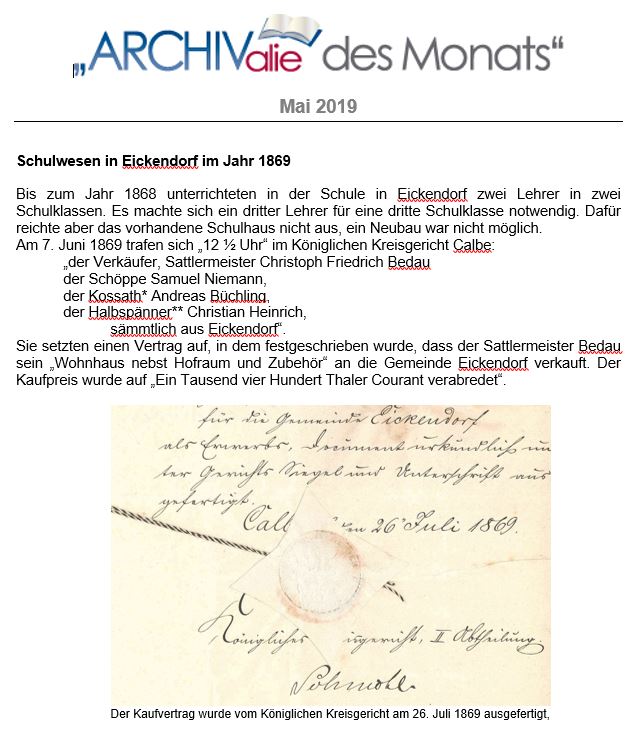 „ARCHIValie des Monats“
Mai 2019
Schulwesen in Eickendorf im Jahr 1869
Bis zum Jahr 1868 unterrichteten in der Schule in Eickendorf zwei Lehrer in zwei
Schulklassen. Es machte sich ein dritter Lehrer für eine dritte Schulklasse notwendig. Dafür
reichte aber das vorhandene Schulhaus nicht aus, ein Neubau war nicht möglich.
Am 7. Juni 1869 trafen sich „12 ½ Uhr“ im Königlichen Kreisgericht Calbe:
„der Verkäufer, Sattlermeister Christoph Friedrich Bedau
der Schöppe Samuel Niemann,
der Kossath* Andreas Büchling,
der Halbspänner** Christian Heinrich,
sämmtlich aus Eickendorf“.
Sie setzten einen Vertrag auf, in dem festgeschrieben wurde, dass der Sattlermeister Bedau
sein „Wohnhaus nebst Hofraum und Zubehör“ an die Gemeinde Eickendorf verkauft. Der
Kaufpreis wurde auf „Ein Tausend vier Hundert Thaler Courant verabredet“.
für die Gemeinde Eickendorf
als Erwerbs, Document urkundlich un
ter Gerichts Siegel und Unterschrift aus
gefertigt.
Calb en 26 Juli 1869.
Königliches isgericht, II Abtheilung.
Der Kaufvertrag wurde vom Königlichen Kreisgericht am 26. Juli 1869 ausgefertigt,